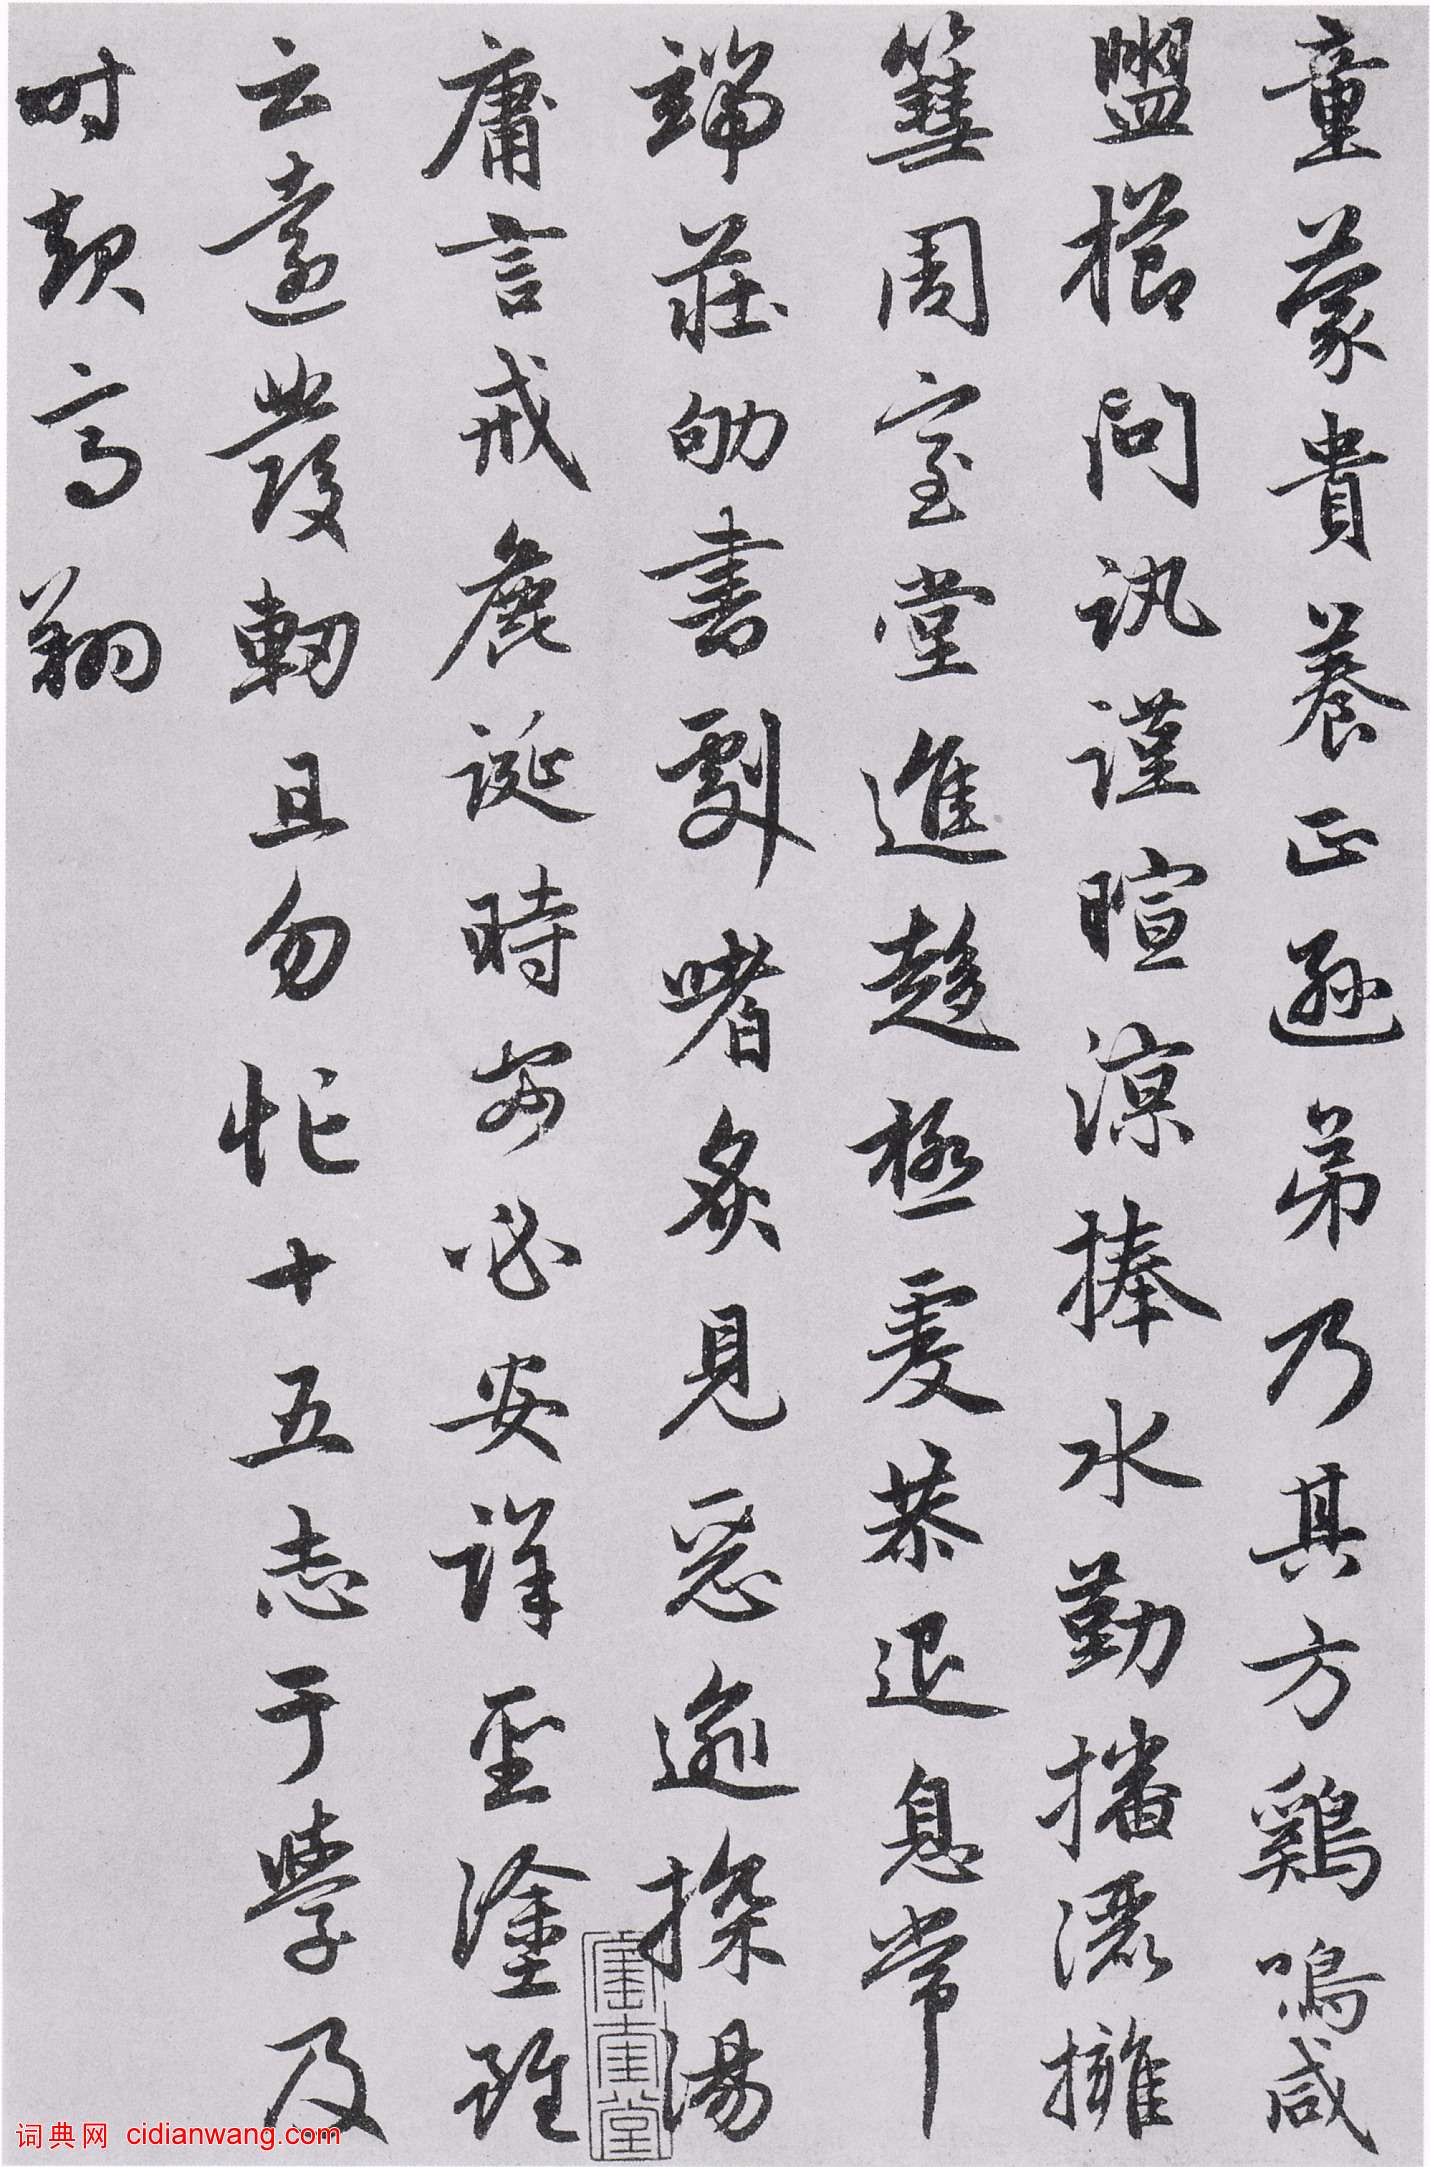 童蒙貴養正遜弟乃其方鷄鳴咸
盥櫛問訊謹暄涼捧水勤播灑擁
篲周室堂進趍極虔恭退息常
端莊劬書劇嗜炙見惡逾探湯
庸言戒麁誕時必安詳聖塗雖
云遠發軔且勿忙十五志于學及
时高翔
词典网 cidianwang.com